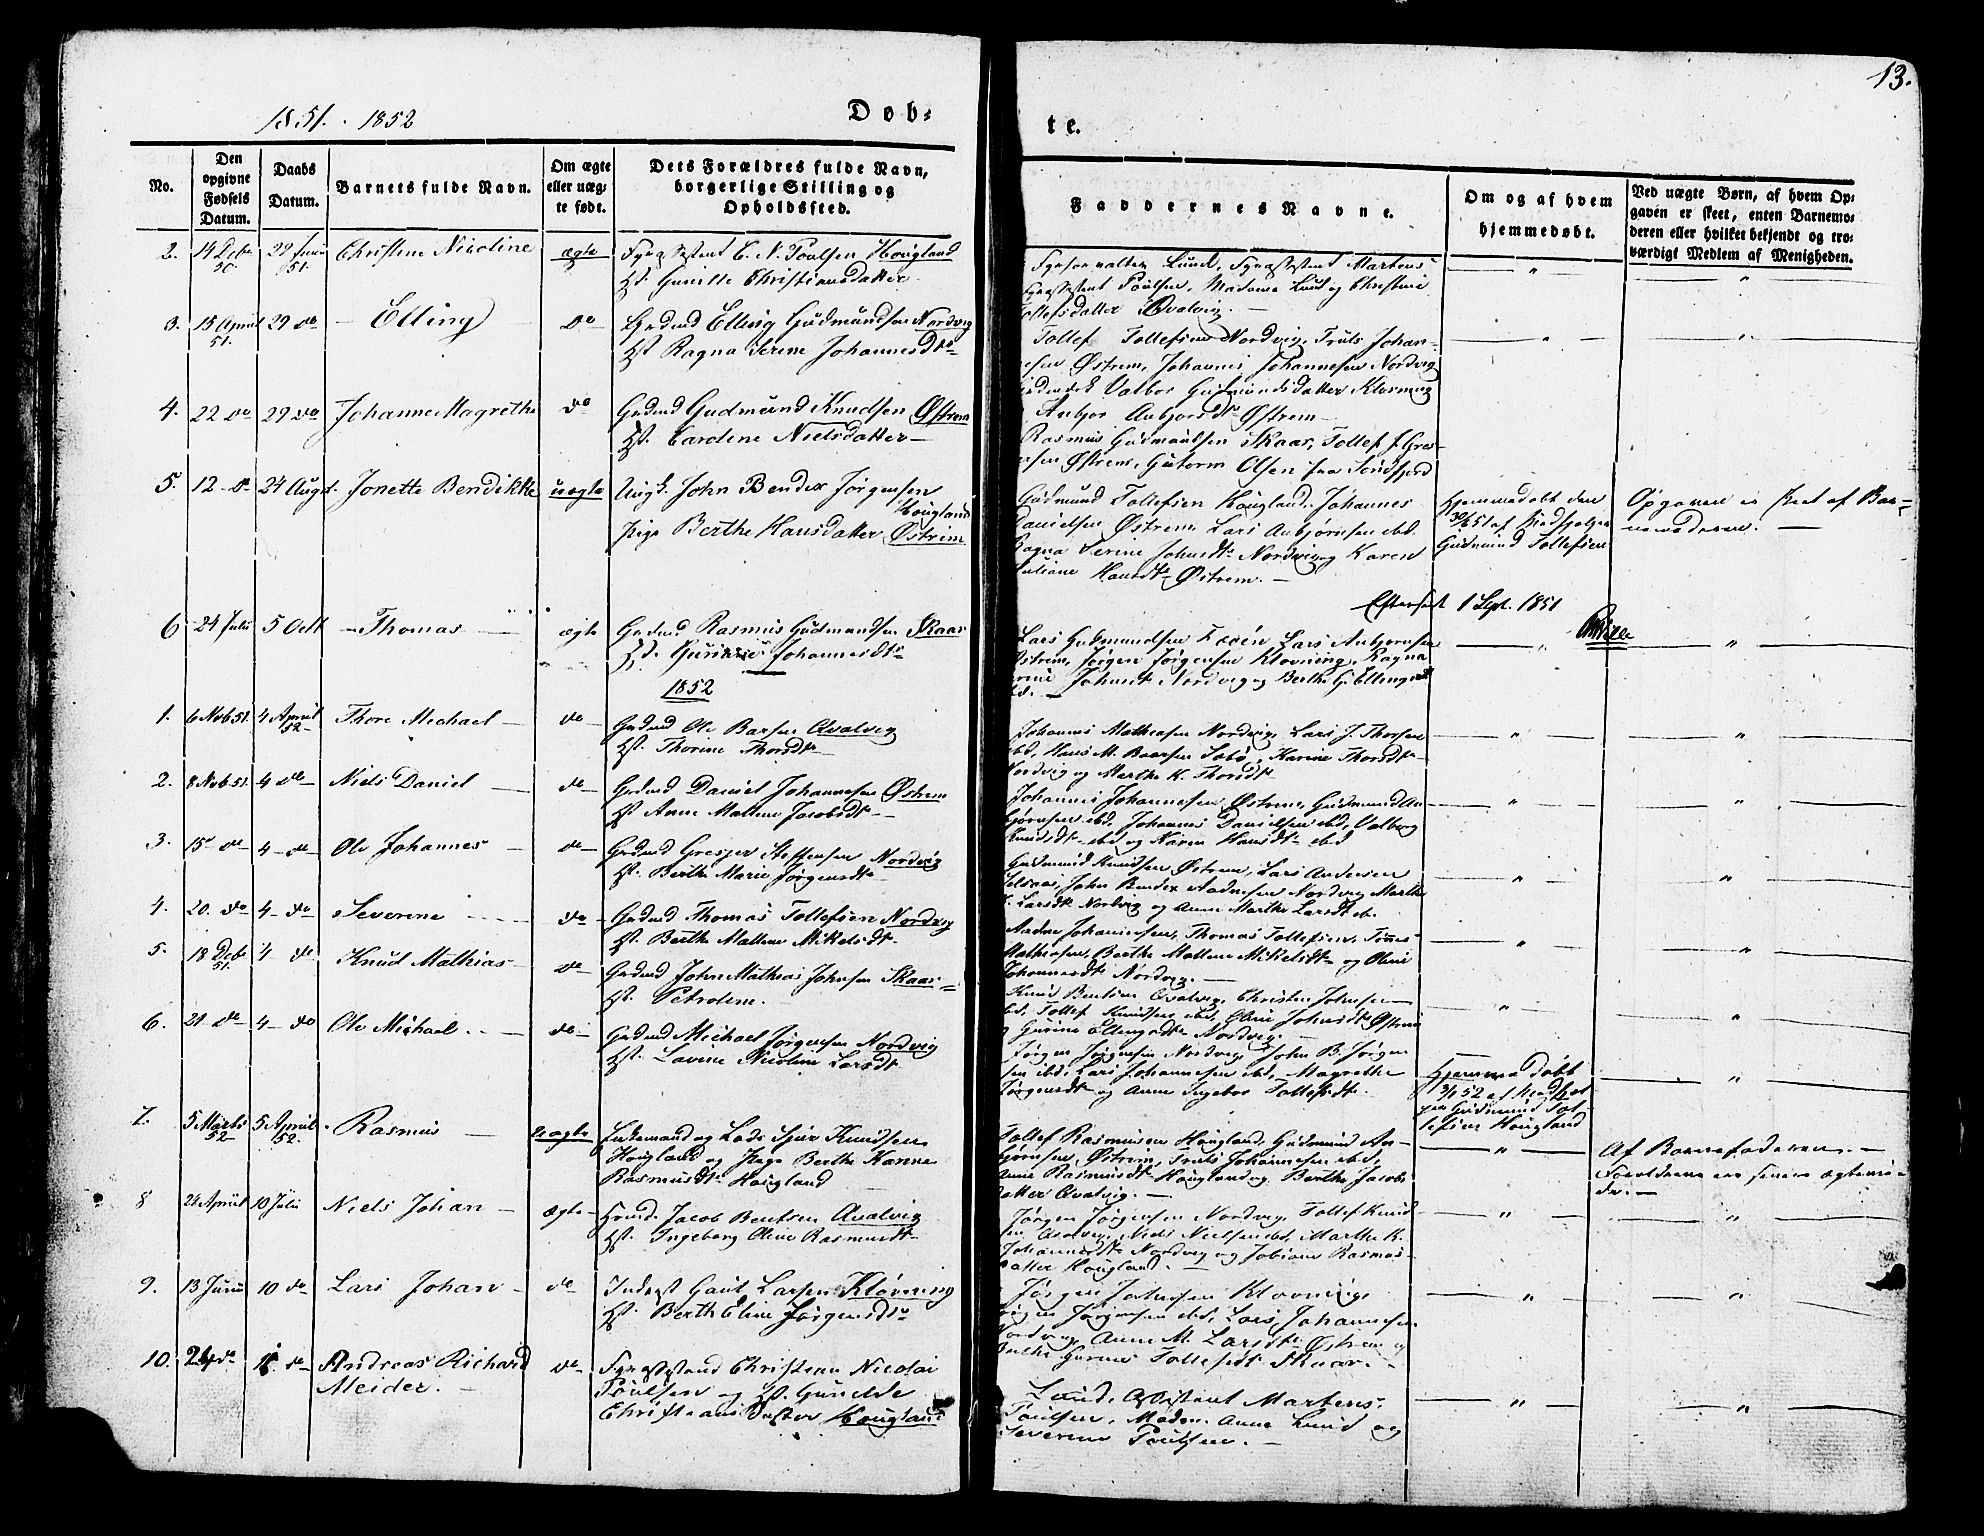 13.
1851. - 1852
Døb-
te.
No.
Den opgivne Fødsels Datum.
Daabs Datum.
Barnets fulde Navn.
Om ægte eller uæg- te født.
Dets Forældres fulde Navn, borgerlige Stilling og Opholdssted.
Faddernes Navne.
Om og af hvem hjemmedøbt.
Ved uægte Børn, af hvem Op- gaven er skeet, enten Barnemo- deren eller hvilket bekjendt og tro- værdigt Medlem af Menigheden.
2. 14 Debr 50. 29 Juni 51. Christine Nicoline ægte Fyrassistent C. N. Poulsen Hougland
Hst. Gunille Christiansdatter
Fyrforvalter Lund, Fyrassistent Martens
Fyrassistent Poulsen, Madame Lund og Christine
Tollefsdatter Qvalvig. —
3. 15 April 51. 29 do — Elling do Grdmd Elling Gudmundsen Nordvig
Hst Ragna Serine Johannesdtr
Tollef Tollefsen Nordvig, Truls Johan-
nesen Østrem, Johannes Johannesen Nordvig
Valbor Gudmundsdatter Klovning
Anbjor Anbjorsdtr Østrem —
4. 22 do 29 do Johanne Magrethe do Grdmd Gudmund Knudsen Østrem
Hst. Caroline Nielsdatter —
Rasmus Gudmundsen Skaar, Tollef
Østrem, Gutorm Olsen fra Søndfjord
5. 12 do 24 Augst. Jonette Bendikke uægte Ungk. John Bendix Jørgensen
Hougland
Pige Berthe Hansdatter Østrem
Gudmund Tollefsen Hougland, Johannes
Danielsen Østrem, Lars Anbjørnsen ibd.
Ragna Serine Johnsdtr Nordvig og Karen
Juliane Hansdtr Østrem. —
Hjemmedøbt den
af
Gudmund Tollefsen
Opgaven er skeet af Bar-
nemoderen. —
Efterseet 1 Sept. 1851
6 24 Juli 5 Octr — Thomas — ægte Grdmd Rasmus Gudmundsen Skaar
Hst. Gurine Johannesdtr
Lars Gudmundsen Lars Anbjornsen
Østrem, Jørgen Jørgensen Klovning, Ragna
Serine Johnsdtr Nordvig og Berthe G. Ellingsdtr
ibd. —
1852
1. 6 Nvb 51. 4 April 52 Thore Michael — do Grdmd Ole Barsen Qvalvig
Hst. Thorine Thorsdtr
Johannes Mathiasen Nordvig, Lars J. Thorsen
ibd, Hans M. Baarsen Sebø, Karine Thorsdtr
Nordvig og Marthe K. Thorsdtr
2. 8 Nvb 51. 4 do Niels Daniel — do Grdmd Daniel Johannesen Østrem
Hst Anne Malene Jacobsdtr
Johannes Johannesen Østrem, Gudmund An-
bjørnsen ibd, Johannes Danielsen ibd, Valborg
Knudsdtr ibd og Karen Hansdtr ibd
3. 15 do 4 do Ole Johannes — do Grdmd Gresjer Steffensen Nordvig
Hst. Berthe Marie Jørgensdtr
Gudmund Knudsen Østrem, Lars Andersen
John Bendix Aadnesen Nordvig, Marthe
Larsdtr Nordvig og Anne Marthe Larsdt ib.
4. 20. do 4 do Severine do Grdmd Thomas Tollefsen Nordvig
Hst. Berthe Mallene Mikelsdtr
Aadne Johannesen, Thomas Tollefsen, Tønnes
Mathiasen, Berthe Mallene Mikelsdtr og Oline
Johannesdtr Nordvig. —
5. 18 Debr 51. 4 do Knud Mathias do Grdmd John Mathias Johnsen Skaar
Hst. Petroline.
Knud Bentsen Qvalvig, Christen Johnsen
ibd, Tollef Knudsen ibd, Oline Johnsdtr Østrem
og Gurine Ellingsdtr Nordvig. —
6. 21 do 4 do Ole Michael. — do Grdmd Michael Jørgensen Nordvig
Hst. Lavine Nicoline Larsdt
Jørgen Jørgensen Nordvig, John B. Jørgen-
sen ibd, Lars Johannesen ibd, Magrethe
Jørgensdt og Anne Ingebor Tollefsdt.
Hjemmedøbt
3/1 52 af
Gudmund Tol-
lefsen Hougland
7. 5 Marts 52 5 April 52. Rasmus — uægte Enkemand og Lods Sjur Knudsen
Hougland og Pige Berthe Karine
Rasmusdtr Hougland
Tollef Rasmusen Hougland, Gudmund An-
bjørnsen Østrem, Truls Johannesen ibd,
Anne Rasmusdtr Hougland og Berthe Jacobs-
datter Qvalvig. —
Af Barnefaderen. —
Forældrene ere senere ægtevie-
de. —
8 24 April 10 Juli Niels Johan — ægte Jacob Bentsen Qvalvig
Hst. Ingeborg Oline Rasmusdtr
Jørgen Jørgensen Nordvig, Tollef Knud-
sen Qvalvig, Niels Nielsen ibd, Marthe K.
Johannesdtr Nordvig og Tobiane Rasmus-
datter Hougland. —
9. 13 Juni 10 do Lars Johan — do Inderst Gaut Larsen Klovning
Hst. Berthe Eline Jørgensdtr
Jørgen Johnsen Klovning,
Jørgen Jørgensen ibd, Lars Johannesen
Nordvig, Anne M. Larsdtr Østrem og
Berthe Gurine Tollefsdt Skaar. —
10. 24 do do Andreas Richard
Meider. — do Fyrassistend Christian Nicolai
Poulsen og Hst. Gunilde
Christiansdatter Hougland
Lund, Assistent Martens
Poulsen, Madm. Anne Lund og
Severine Poulsen. —